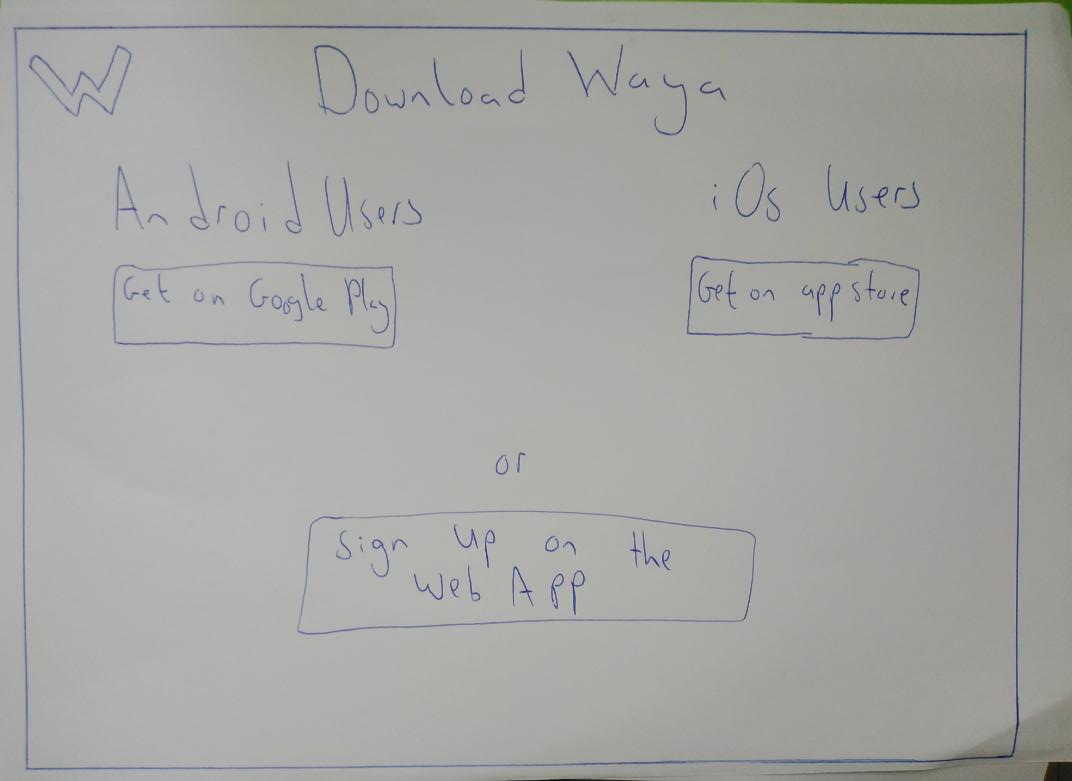 W
Download Waya
Android Users
iOs Users
Get on Google Play
Get on app store
or
Sign up on the
Web App